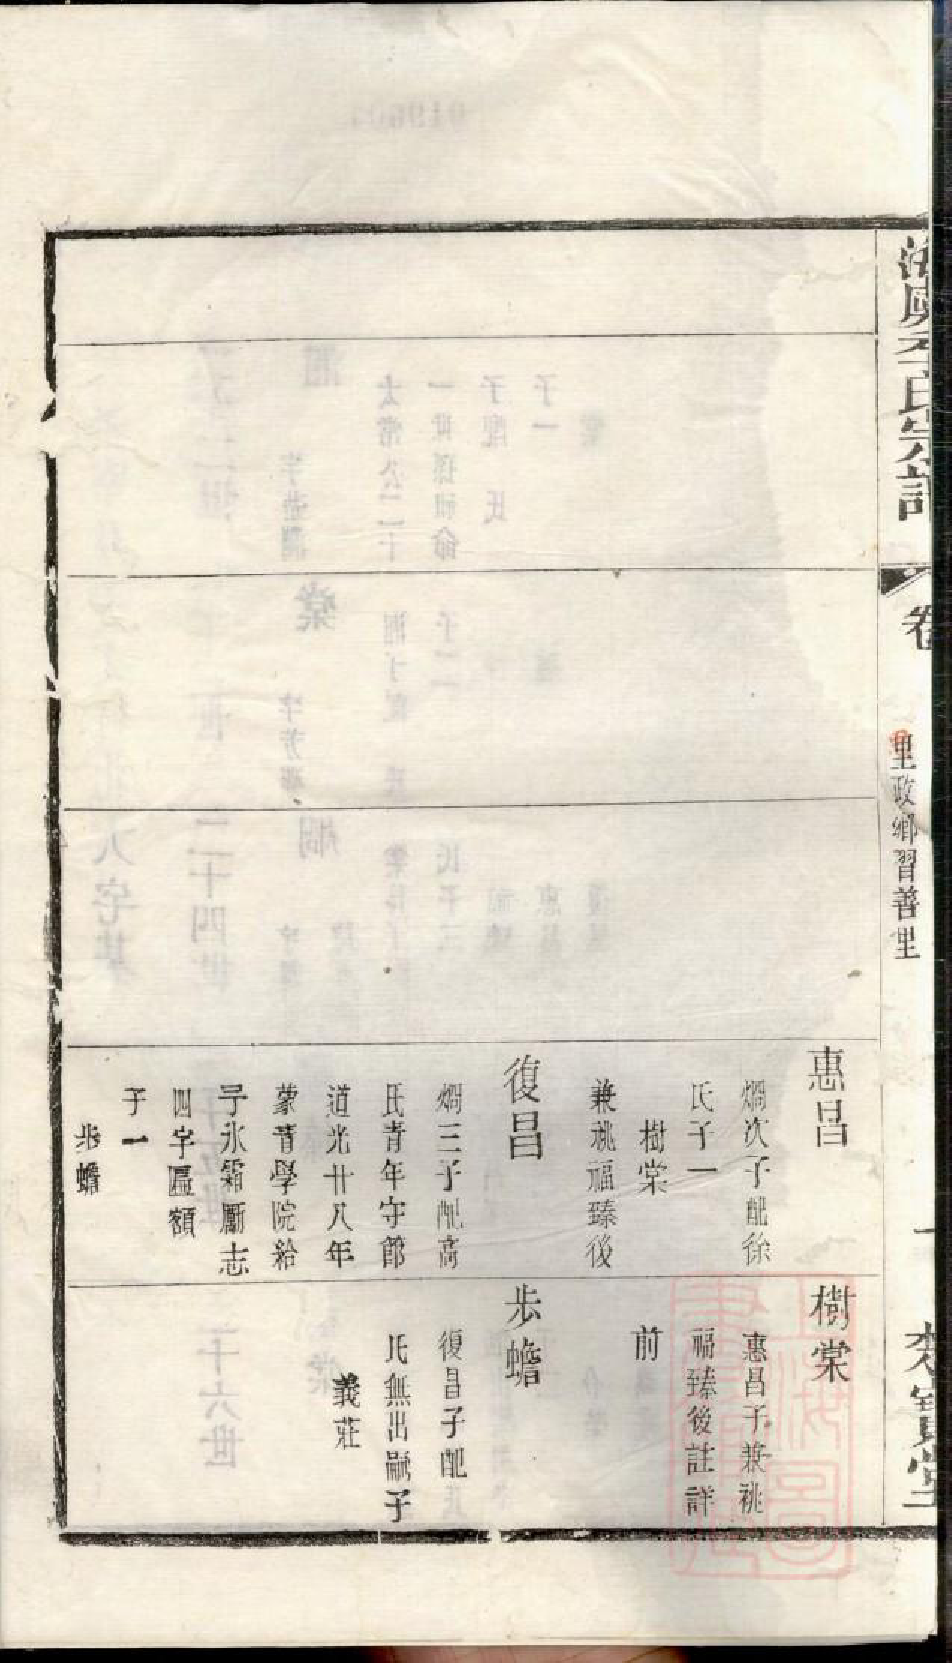 氏宗譜
卷
里政鄉習善里
惠昌
烱次子配徐
氏子一
樹棠
兼祧福臻後
復昌
烱三子配高
氏青年守節
道光廿八年
蒙青學院給
予氷霜勵志
四字匾額
子一
步蟾
樹棠
惠昌子兼祧
福臻後註詳
前
步蟾
復昌子配
氏無出嗣子
義莊